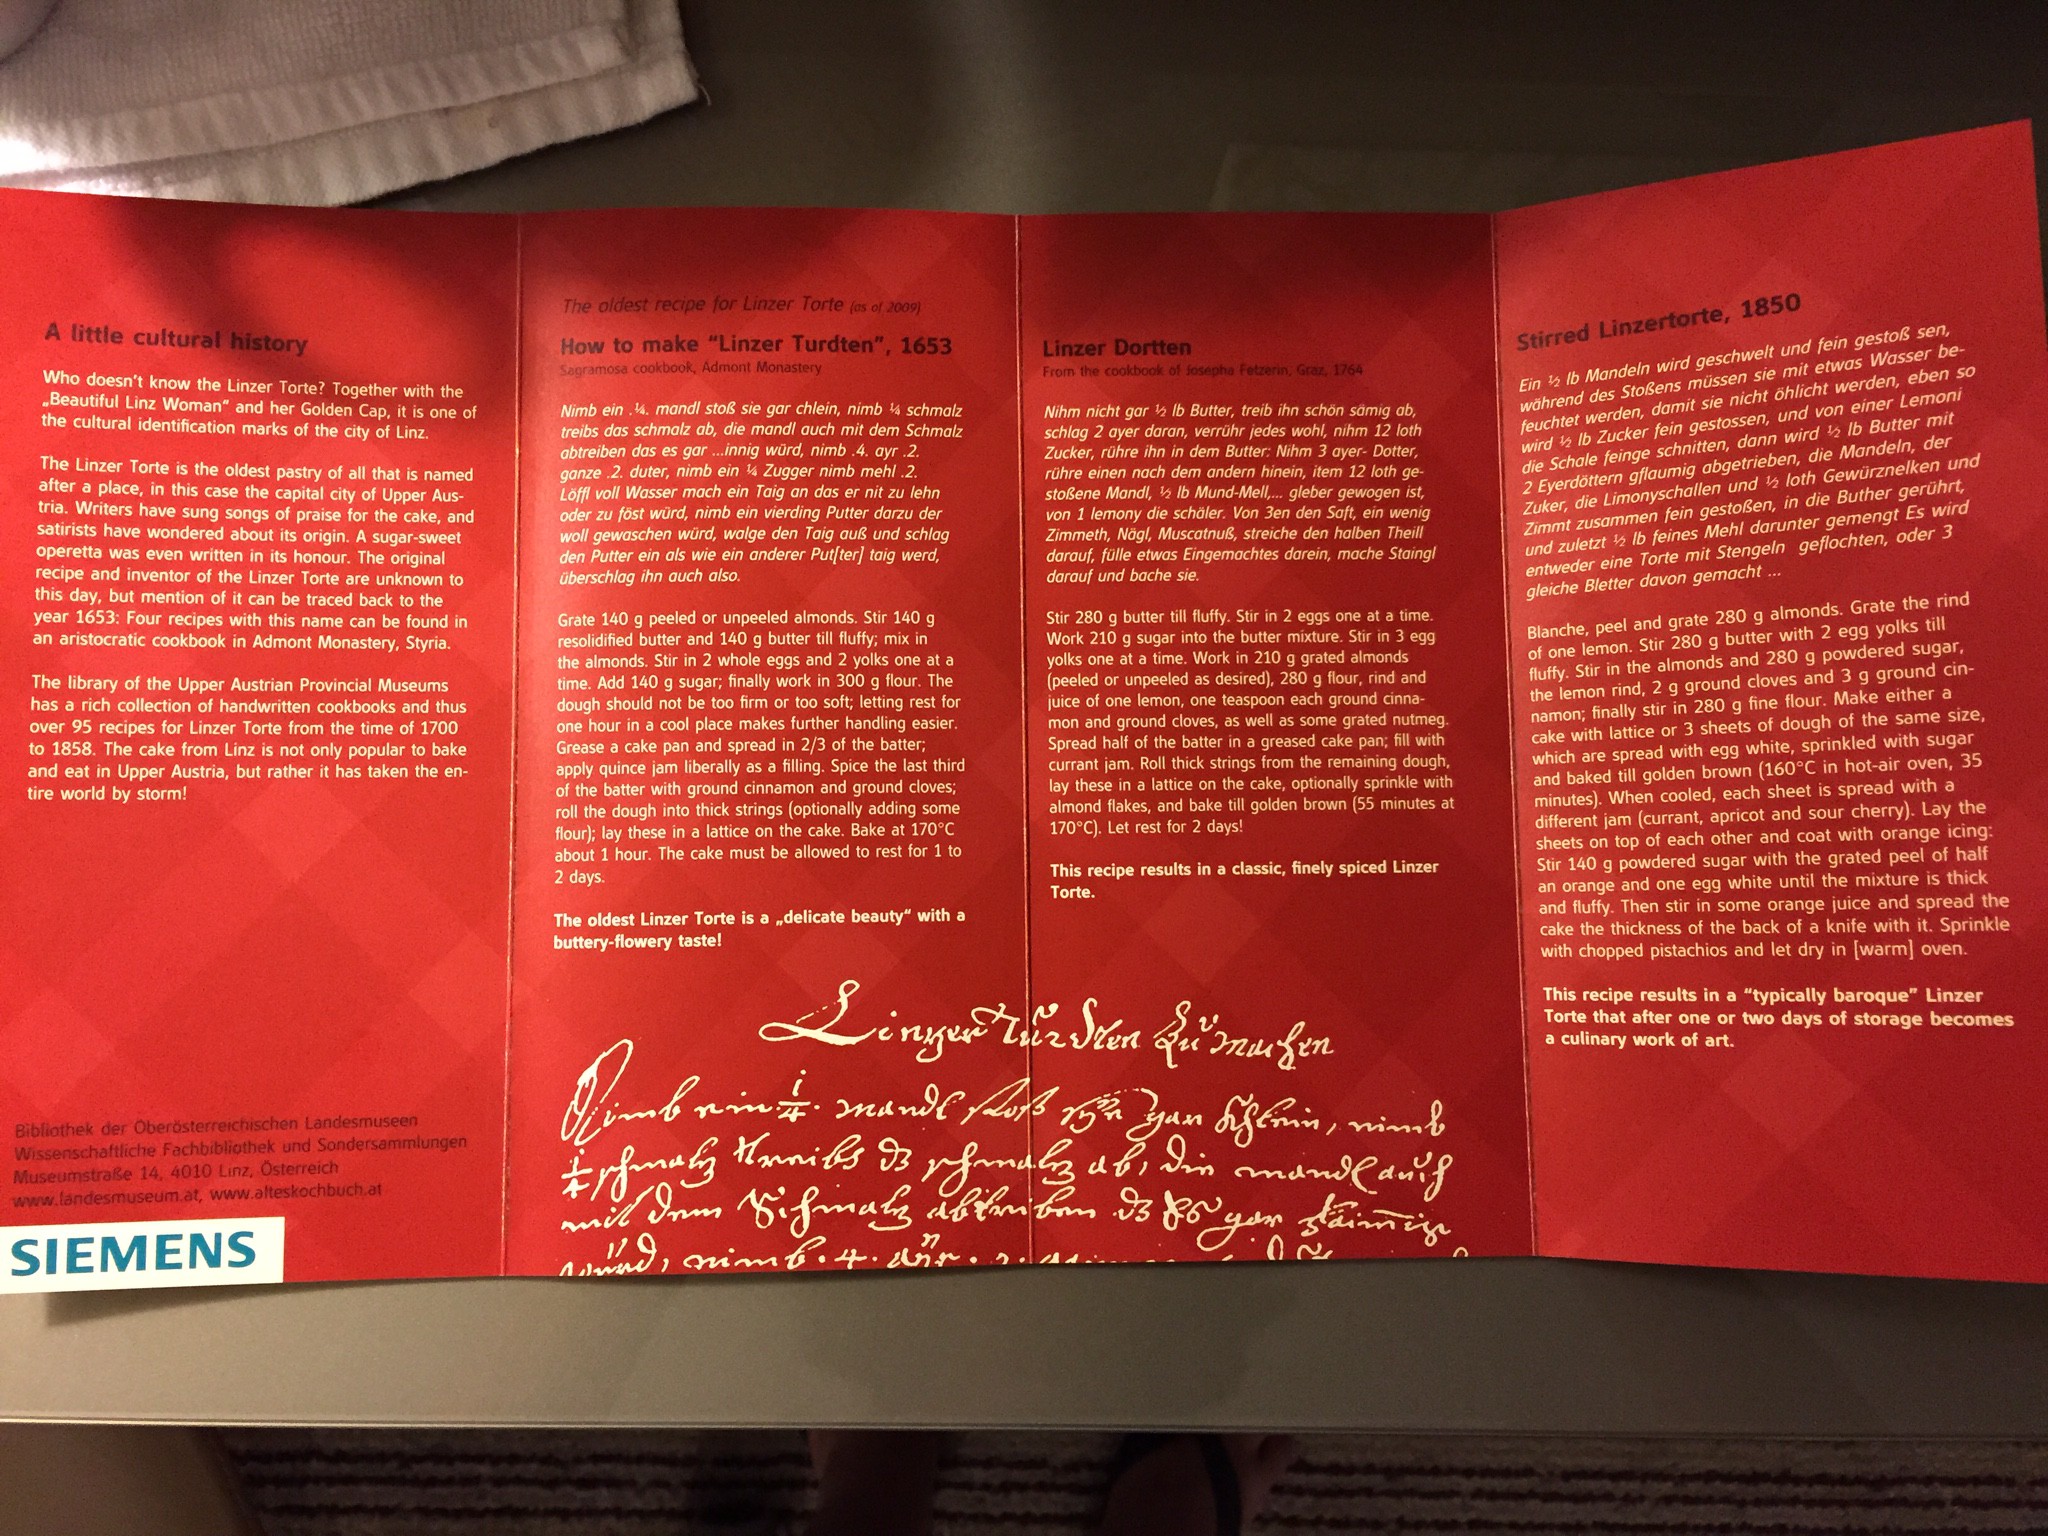 A little cultural history
Who doesn't know the Linzer Torte? Together with the
„Beautiful Linz Woman" and her Golden Cap, it is one of
the cultural identification marks of the city of Linz.
The Linzer Torte is the oldest pastry of all that is named
after a place, in this case the capital city of Upper Aus-
tria. Writers have sung songs of praise for the cake, and
satirists have wondered about its origin. A sugar-sweet
operetta was even written in its honour. The original
recipe and inventor of the Linzer Torte are unknown to
this day, but mention of it can be traced back to the
year 1653: Four recipes with this name can be found in
an aristocratic cookbook in Admont Monastery, Styria.
The library of the Upper Austrian Provincial Museums
has a rich collection of handwritten cookbooks and thus
over 95 recipes for Linzer Torte from the time of 1700
to 1858. The cake from Linz is not only popular to bake
and eat in Upper Austria, but rather it has taken the en-
tire world by storm!
Bibliothek der Oberösterreichischen Landesmuseen
Wissenschaftliche Fachbibliothek und Sondersammlungen
Museumstraße 14, 4010 Linz, Österreich
www.landesmuseum.at, www.alteskochbuch.at
SIEMENS
The oldest recipe for Linzer Torte (as of 2009)
How to make "Linzer Turdten", 1653
Sagramosa cookbook, Admont Monastery
Nimb ein .¼. mandl stoß sie gar chlein, nimb ¼ schmalz
treibs das schmalz ab, die mandl auch mit dem Schmalz
abtreiben das es gar ...innig würd, nimb .4. ayr .2.
ganze .2. duter, nimb ein ¼ Zugger nimb mehl .2.
Löffl voll Wasser mach ein Taig an das er nit zu lehn
oder zu föst würd, nimb ein vierding Putter darzu der
woll gewaschen würd, walge den Taig auß und schlag
den Putter ein als wie ein anderer Put[ter] taig werd,
überschlag ihn auch also.
Grate 140 g peeled or unpeeled almonds. Stir 140 g
resolidified butter and 140 g butter till fluffy; mix in
the almonds. Stir in 2 whole eggs and 2 yolks one at a
time. Add 140 g sugar; finally work in 300 g flour. The
dough should not be too firm or too soft; letting rest for
one hour in a cool place makes further handling easier.
Grease a cake pan and spread in 2/3 of the batter;
apply quince jam liberally as a filling. Spice the last third
of the batter with ground cinnamon and ground cloves;
roll the dough into thick strings (optionally adding some
flour); lay these in a lattice on the cake. Bake at 170°C
about 1 hour. The cake must be allowed to rest for 1 to
2 days.
The oldest Linzer Torte is a „delicate beauty" with a
buttery-flowery taste!
Linzer Turdten Zu machen
Nimb ein ¼. mandl stoß sye gar chlein, nimb
¼ schmalz treibs dz schmalz ab, die mandl auch
mit dem Schmalz abtreiben dz es gar
würd, nimb .4. ayr . 2.
Linzer Dortten
From the cookbook of Josepha Fetzerin, Graz, 1764
Nihm nicht gar ½ lb Butter, treib ihn schön sämig ab,
schlag 2 ayer daran, verrühr jedes wohl, nihm 12 loth
Zucker, rühre ihn in dem Butter: Nihm 3 ayer- Dotter,
rühre einen nach dem andern hinein, item 12 loth ge-
stoßene Mandl, ½ lb Mund-Mell,... gleber gewogen ist,
von 1 lemony die schäler. Von 3en den Saft, ein wenig
Zimmeth, Nägl, Muscatnuß, streiche den halben Theill
darauf, fülle etwas Eingemachtes darein, mache Staingl
darauf und bache sie.
Stir 280 g butter till fluffy. Stir in 2 eggs one at a time.
Work 210 g sugar into the butter mixture. Stir in 3 egg
yolks one at a time. Work in 210 g grated almonds
(peeled or unpeeled as desired), 280 g flour, rind and
juice of one lemon, one teaspoon each ground cinna-
mon and ground cloves, as well as some grated nutmeg.
Spread half of the batter in a greased cake pan; fill with
currant jam. Roll thick strings from the remaining dough,
lay these in a lattice on the cake, optionally sprinkle with
almond flakes, and bake till golden brown (55 minutes at
170°C). Let rest for 2 days!
This recipe results in a classic, finely spiced Linzer
Torte.
Stirred Linzertorte, 1850
Ein ½ lb Mandeln wird geschwelt und fein gestoß sen,
während des Stoßens müssen sie mit etwas Wasser be-
feuchtet werden, damit sie nicht öhlicht werden, eben so
wird ½ lb Zucker fein gestossen, und von einer Lemoni
die Schale feinge schnitten, dann wird ½ lb Butter mit
2 Eyerdöttern gflaumig abgetrieben, die Mandeln, der
Zuker, die Limonyschallen und ½ loth Gewürznelken und
Zimmt zusammen fein gestoßen, in die Buther gerührt,
und zuletzt ½ lb feines Mehl darunter gemengt Es wird
entweder eine Torte mit Stengeln geflochten, oder 3
gleiche Bletter davon gemacht ...
Blanche, peel and grate 280 g almonds. Grate the rind
of one lemon. Stir 280 g butter with 2 egg yolks till
fluffy. Stir in the almonds and 280 g powdered sugar,
the lemon rind, 2 g ground cloves and 3 g ground cin-
namon; finally stir in 280 g fine flour. Make either a
cake with lattice or 3 sheets of dough of the same size,
which are spread with egg white, sprinkled with sugar
and baked till golden brown (160°C in hot-air oven, 35
minutes). When cooled, each sheet is spread with a
different jam (currant, apricot and sour cherry). Lay the
sheets on top of each other and coat with orange icing:
Stir 140 g powdered sugar with the grated peel of half
an orange and one egg white until the mixture is thick
and fluffy. Then stir in some orange juice and spread the
cake the thickness of the back of a knife with it. Sprinkle
with chopped pistachios and let dry in [warm] oven.
This recipe results in a "typically baroque" Linzer
Torte that after one or two days of storage becomes
a culinary work of art.